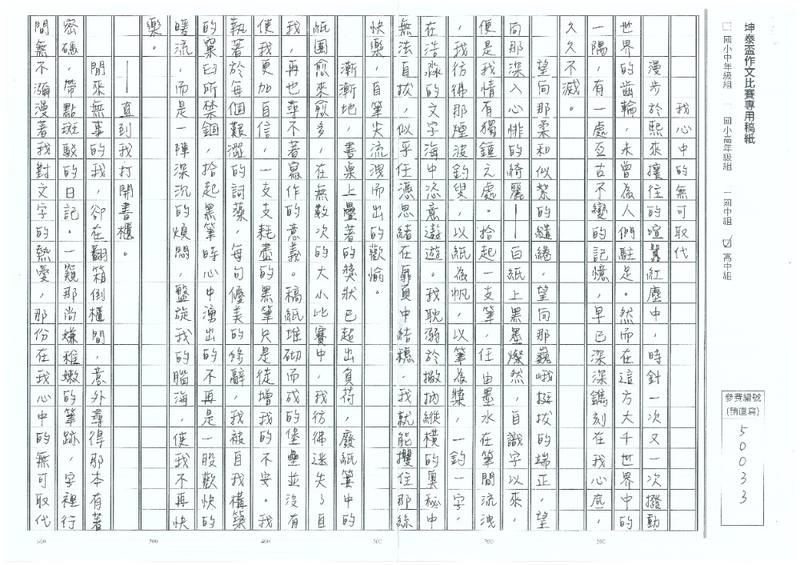 坤泰盃作文比賽專用稿紙
□國小中年級組 □國小高年級組 □國中組 ☑高中組
參賽編號
(請填寫)
50033
我心中的無可取代
漫步於熙來攘往的喧囂紅塵中,時針一次又一次撥動
世界的齒輪,未曾為人們駐足。然而在這方大千世界中的
一隅,有一處亙古不變的記憶,早已深深鐫刻在我心底,
久久不滅。
望向那柔和似絮的繾綣,望向那巍峨挺拔的端正,望
向那深入心悱的綺麗——白紙上黑墨燦然,自識字以來,
便是我情有獨鍾之處。拾起一支筆,任由墨水在筆間流洩
,我彷彿那煙波釣叟,以紙為帆,以筆為槳,一鈎一字,
在浩淼的文字海中恣意遨遊。我耽溺於撇捺縱橫的奧秘中
無法自拔,似乎任憑思緒在扉頁中結穗,我就能攫住那絲
快樂,自筆尖流洩而出的歡愉。
漸漸地,書桌上疊著的獎狀已超出負荷,廢紙簍中的
紙團愈來愈多,在無數次的大小比賽中,我彷彿迷失了自
我,再也尋不著寫作的意義。稿紙堆砌而成的堡壘並沒有
使我更加自信,一支支耗盡的黑筆只是徒增我的不安。我
執著於每個艱澀的詞藻,每句優美的修辭,我被自我構築
的窠臼所禁錮,拾起黑筆時心中湧出的不再是一股歡快的
暖流,而是一陣深沉的煩悶,盤旋我的腦海,使我不再快
樂。
——直到我打開書櫃。
閒來無事的我,卻在翻箱倒櫃間,意外尋得那本有著
密碼,帶點斑駁的日記。一窺那尚嫌稚嫩的筆跡,字裡行
間無不瀰漫著我對文字的熱愛,那份在我心中的無可取代
600
500
400
300
200
100